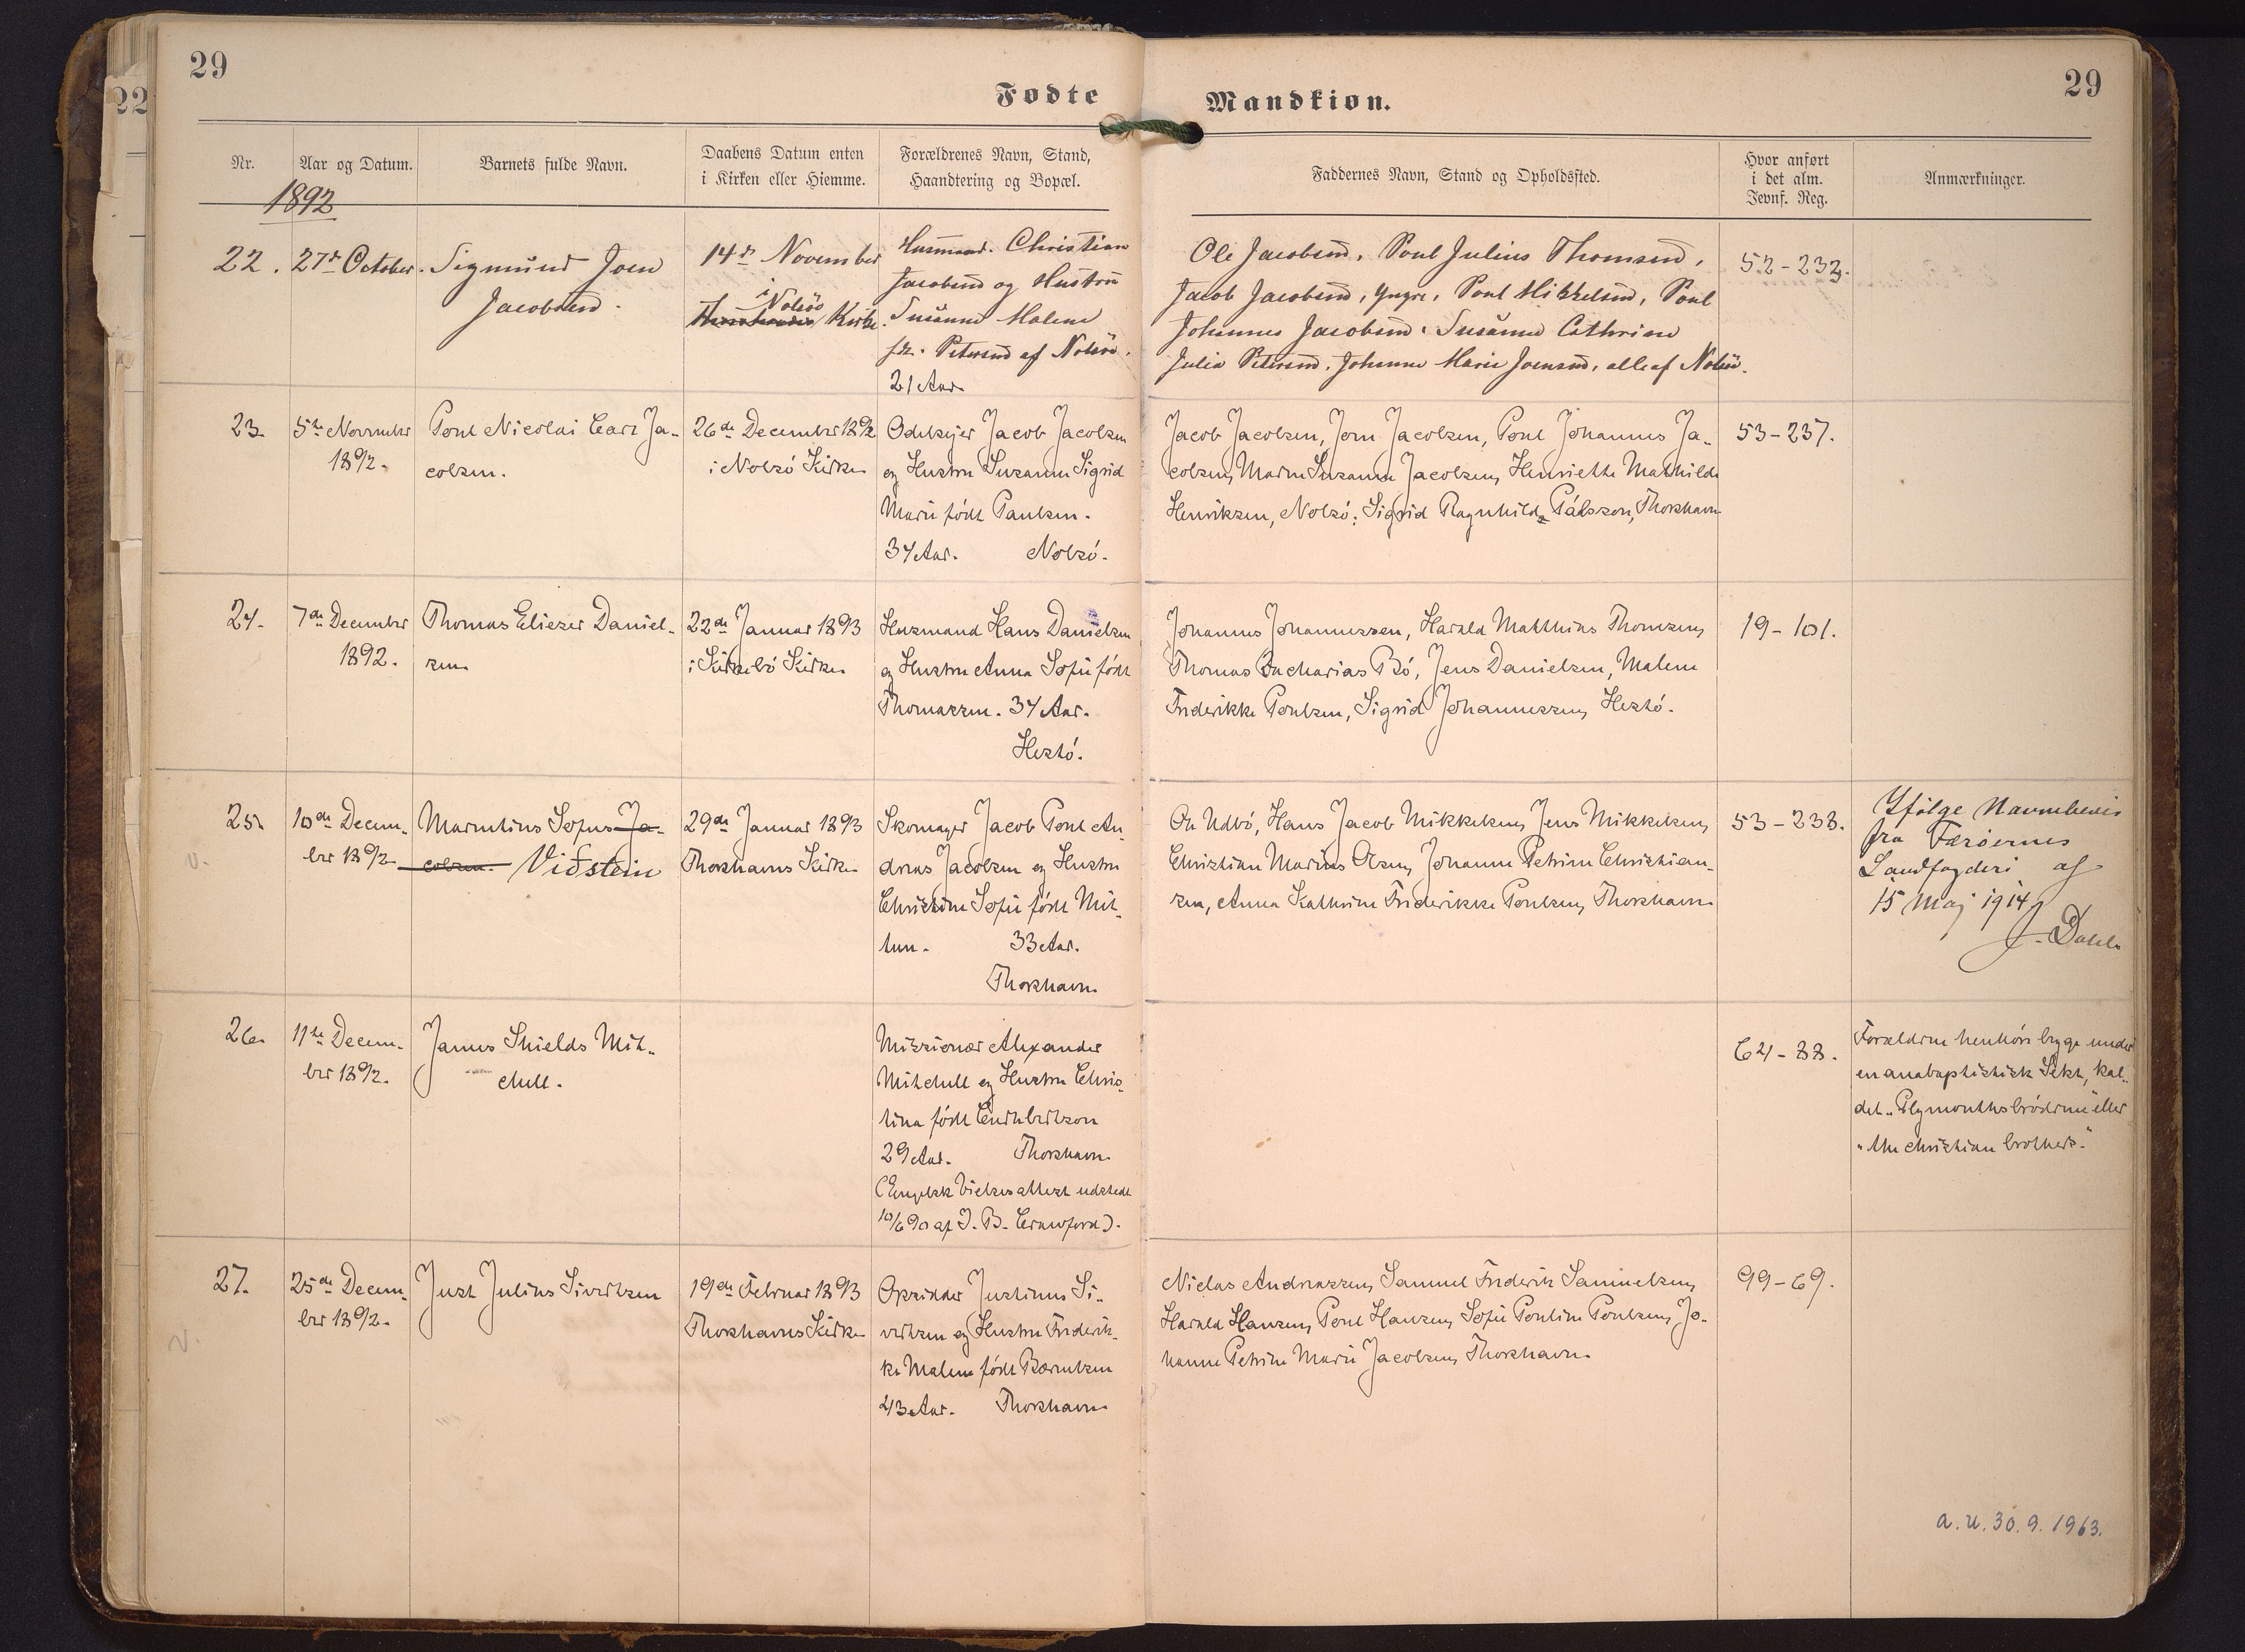 29
29
22
Fødte
Mandkiøn.
Nr.
Aar og Datum.
Barnets fulde Navn.
Daabens Datum enten
i Kirken eller Hiemme.
Forældrenes Navn, Stand,
Haandtering og Bopæl.
Faddernes Navn, Stand og Opholdssted.
Hvor anført
i det alm.
Jevnf. Reg.
Anmærkninger.
1892
22.
27de October.
Sigmund Joen
Jacobsen.
14de November
i
Nolsø
Kirke.
Husmand. Christian
Jacobsen og Hustru
Susanne Malene
fd. Petersen af Nolsø.
21 Aar
Ole Jacobsen, Poul Julius Thomsen,
Jacob Jacobsen, yngre, Poul Mikkelsen, Poul
Johannes Jacobsen, Susanne Cathrine
Julia Petersen, Johanne Marie Joensen, alle af Nolsø.
52-232.
23.
5te November
1892.
Poul Nicolai Carl Ja-
cobsen.
26de December 1892
i Nolsø Kirke
Odelsejer Jacob Jacobsen
og Hustru Susanne Sigrid
Marie født Paulsen.
34 Aar. Nolsø.
Jacob Jacobsen, Joen Jacobsen, Poul Johannes Ja-
cobsen, Maren Susanne Jacobsen, Henriette Mathilde
Henriksen, Nolsø; Sigrid Ragnhild Pálsson, Thorshavn
53-237.
24.
7de December
1892.
Thomas Eliezer Daniel-
sen
22de Januar 1893
i Kirkebø Kirke
Husmand Hans Danielsen
og Hustru Anna Sofie født
Thomassen. 34 Aar.
Hestø.
Johannes Johannessen, Harald Matthias Thomsen,
Thomas Zacharias Bø, Jens Danielsen, Malene
Frederikke Poulsen, Sigrid Johannessen, Hestø.
19-101.
25.
10de Decem-
ber 1892
Marentius Sofus Ja-
cobsen. Viðstein
29de Januar 1893
Thorshavns Kirke
Skomager Jacob Poul An-
dreas Jacobsen og Hustru
Christine Sofie født Mit-
ten. 33 Aar.
Thorshavn
Ole Udbø, Hans Jacob Mikkelsen, Jens Mikkelsen,
Christian Marius Olsen, Johanne Petrine Christian-
sen, Anna Kathrine Frederikke Poulsen, Thorshavn
53-238.
Ifølge Navnebevis
fra Færøernes
Landfogderi af
15 Maj 1914
J. Dahl
26.
11te Decem-
ber 1892.
James Shields Mit-
chell.
Missionær Alexander
Mitchell og Hustru Chris-
tina født Cuthbertson
29 Aar. Thorshavn
(Engelsk Vielsesattest udstedt
10/6 90 af J. B. Crawford).
64-88.
Forældrene henhøre begge under
en anabaptistisk Sekt, kal-
det "Plymouthsbrødrene" eller
"the christian brothers."
27.
25de Decem-
ber 1892.
Just Julius Sivertsen
19de Februar 1893
Thorshavns Kirke
Opsidder Justinus Si-
vertsen og Hustru Frederik-
ke Malene født Berentsen
43 Aar. Thorshavn
Niclas Andreassen, Samuel Frederik Samuelsen,
Harald Hansen, Poul Hansen, Sofie Pouline Poulsen, Jo-
hanne Petrine Marie Jacobsen, Thorshavn
99-69.
a. u. 30.9.1963.